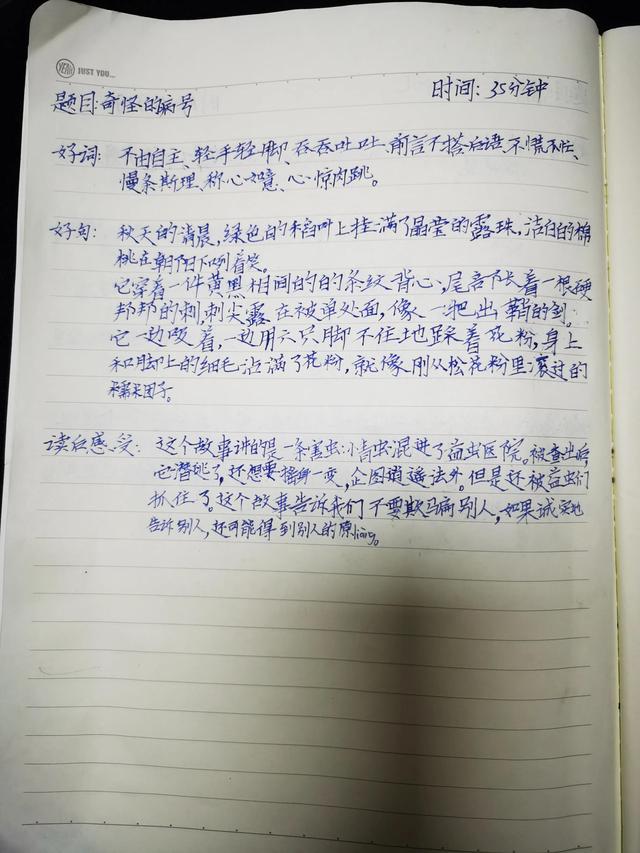 YEAH JUST YOU...
题目:奇怪的病号 时间:35分钟
好词: 不由自主、轻手轻脚、吞吞吐吐、前言不搭后语、不慌不忙、
慢条斯理、称心如意、心惊肉跳。
好句: 秋天的清晨,绿色的稻叶上挂满了晶莹的露珠,洁白的棉
桃在朝阳下咧着笑。
它穿着一件黄黑相间的的条纹背心,尾部长着一根硬
邦邦的刺刺尖露在被单外面,像一把出鞘的剑。
它一边吸着,一边用六只脚不住地踩着花粉,身上
和脚上的细毛沾满了花粉,就像刚从松花粉里滚过的
糯米团子。
读后感受: 这个故事讲的是一条害虫:小青虫混进了益虫医院。被查出后,
它潜逃了,还想要摇身一变,企图逍遥法外。但是还被益虫们
抓住了。这个故事告诉我们不要欺骗别人,如果诚实地
告诉别人,还可能得到别人的原liàng。